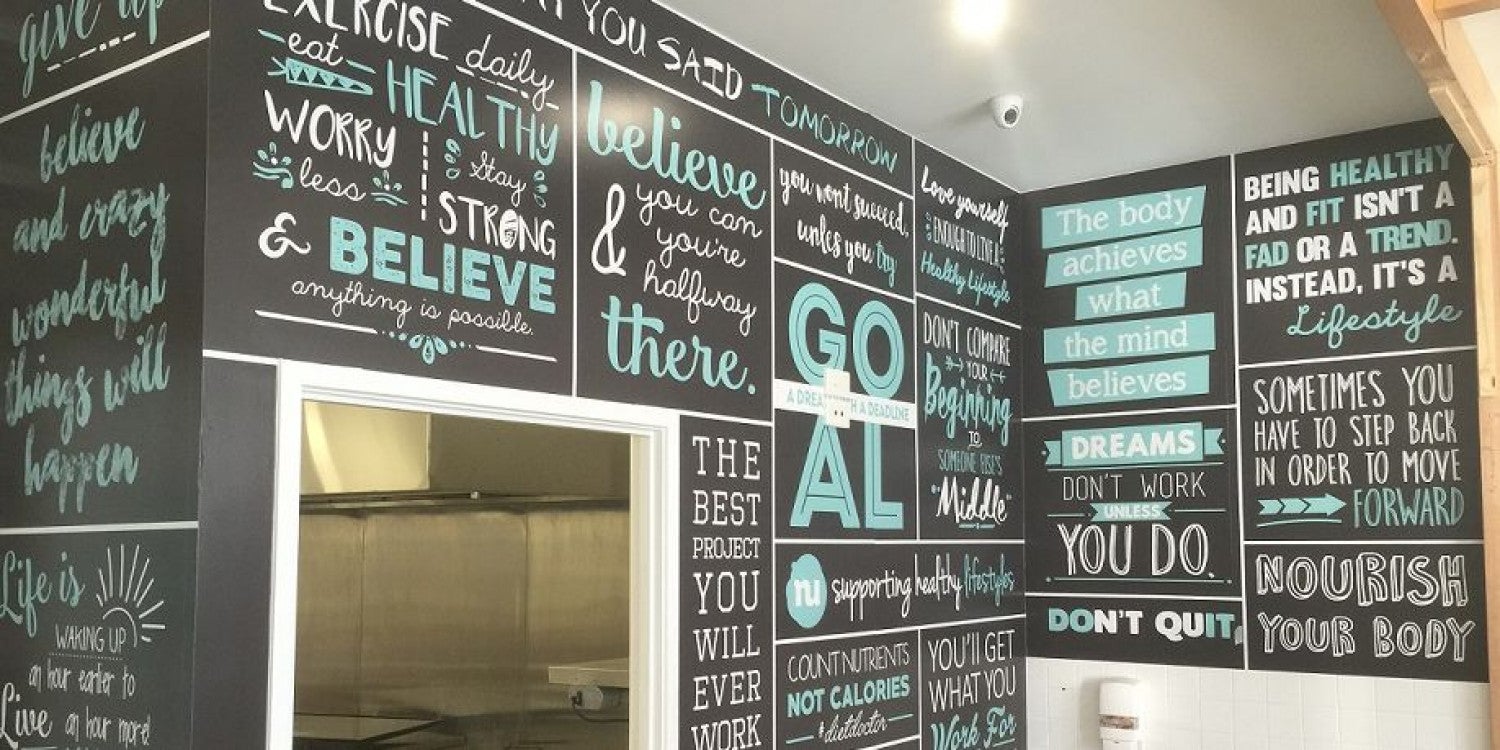 give up
believe
and crazy
wonderful
things will
happen
Life is
WAKING UP
an hour earlier to
Live an hour more!
EXERCISE daily
eat HEALTHY
WORRY
less
Stay
STRONG
& BELIEVE
anything is possible.
YOU SAID TOMORROW
believe
& you can
you're
halfway
there.
THE
BEST
PROJECT
YOU
WILL
EVER
WORK
you won't succeed,
unless you try
GO
A DREAM WITH A DEADLINE
AL
nu supporting healthy lifestyles
COUNT NUTRIENTS
NOT CALORIES
#dietdoctor
Love yourself
ENOUGH TO LIVE A
Healthy Lifestyle
DON'T COMPARE
YOUR
Beginning
TO
SOMEONE ELSE'S
"Middle"
YOU'LL GET
WHAT YOU
Work For
The body
achieves
what
the mind
believes
DREAMS
DON'T WORK
UNLESS
YOU DO.
DON'T QUIT
BEING HEALTHY
AND FIT ISN'T A
FAD OR A TREND.
INSTEAD, IT'S A
Lifestyle
SOMETIMES YOU
HAVE TO STEP BACK
IN ORDER TO MOVE
FORWARD
NOURISH
YOUR BODY